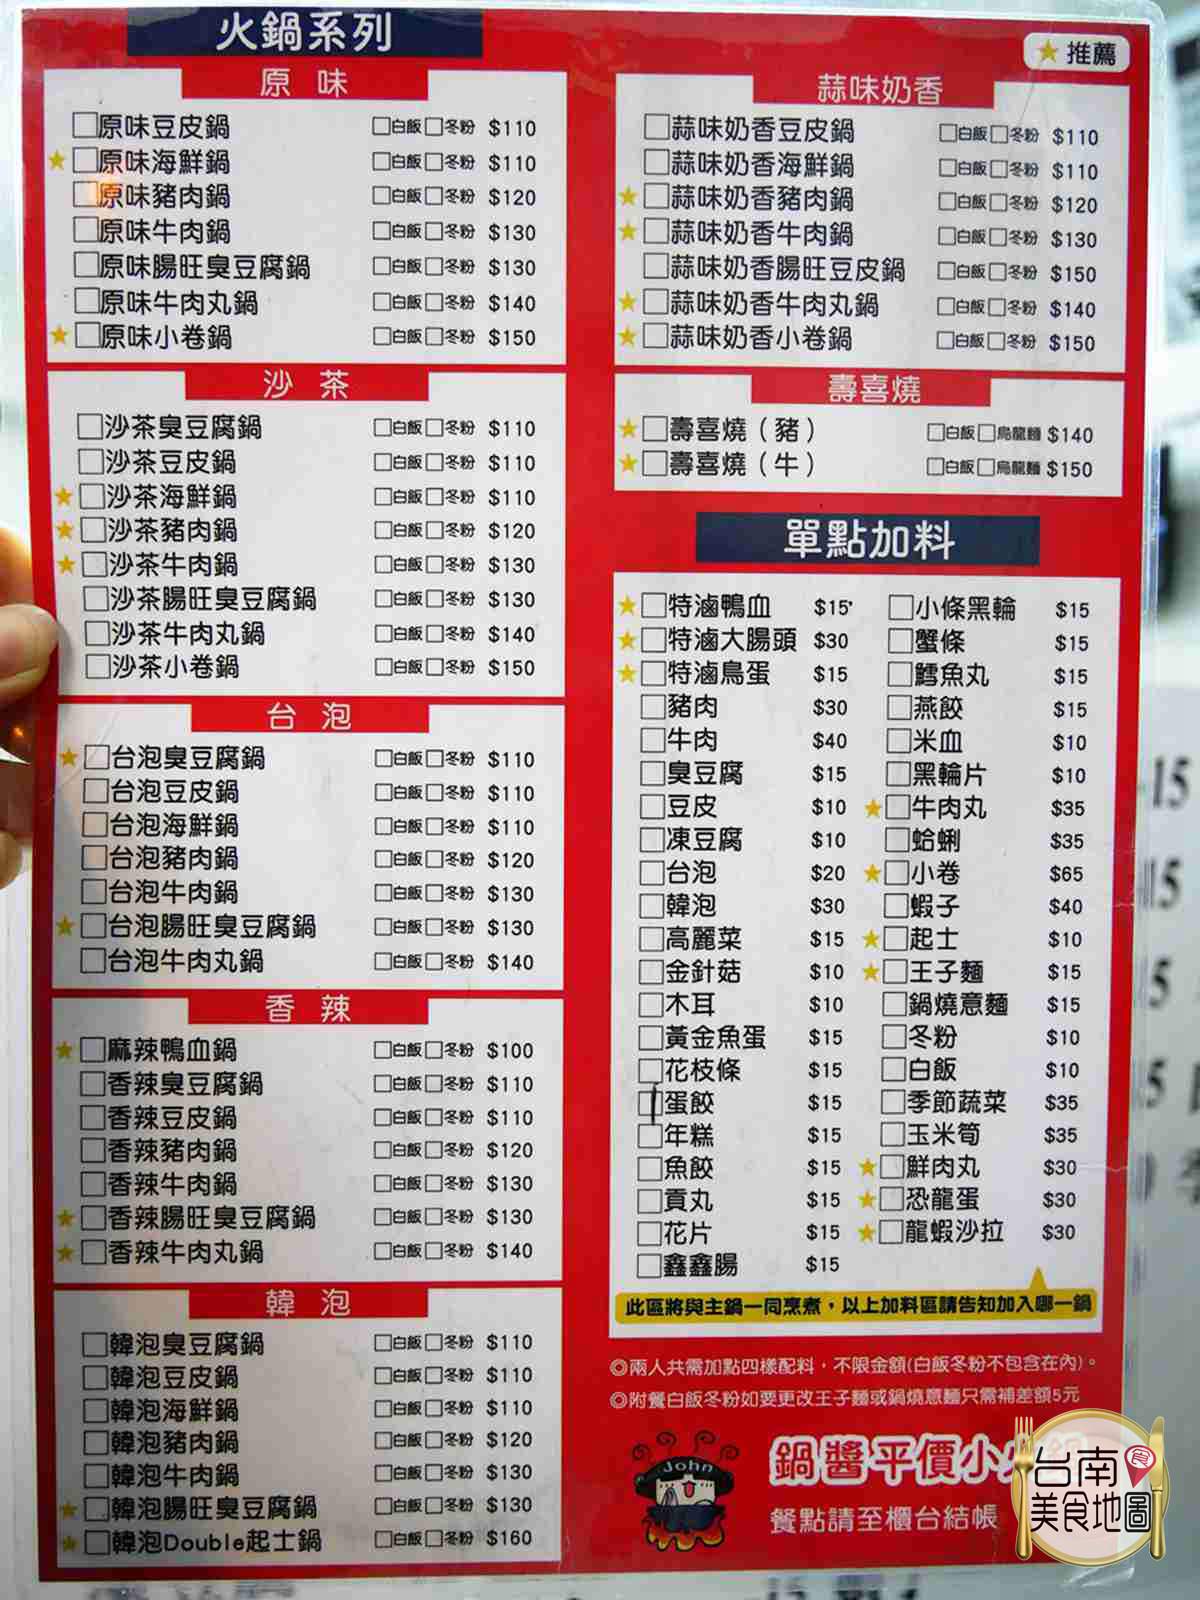 火鍋系列
推薦
原 味
原味豆皮鍋 白飯 冬粉 $110
原味海鮮鍋 白飯 冬粉 $110
原味豬肉鍋 白飯 冬粉 $120
原味牛肉鍋 白飯 冬粉 $130
原味腸旺臭豆腐鍋 白飯 冬粉 $130
原味牛肉丸鍋 白飯 冬粉 $140
原味小卷鍋 白飯 冬粉 $150
沙 茶
沙茶臭豆腐鍋 白飯 冬粉 $110
沙茶豆皮鍋 白飯 冬粉 $110
沙茶海鮮鍋 白飯 冬粉 $110
沙茶豬肉鍋 白飯 冬粉 $120
沙茶牛肉鍋 白飯 冬粉 $130
沙茶腸旺臭豆腐鍋 白飯 冬粉 $130
沙茶牛肉丸鍋 白飯 冬粉 $140
沙茶小卷鍋 白飯 冬粉 $150
台 泡
台泡臭豆腐鍋 白飯 冬粉 $110
台泡豆皮鍋 白飯 冬粉 $110
台泡海鮮鍋 白飯 冬粉 $110
台泡豬肉鍋 白飯 冬粉 $120
台泡牛肉鍋 白飯 冬粉 $130
台泡腸旺臭豆腐鍋 白飯 冬粉 $130
台泡牛肉丸鍋 白飯 冬粉 $140
香 辣
麻辣鴨血鍋 白飯 冬粉 $100
香辣臭豆腐鍋 白飯 冬粉 $110
香辣豆皮鍋 白飯 冬粉 $110
香辣豬肉鍋 白飯 冬粉 $120
香辣牛肉鍋 白飯 冬粉 $130
香辣腸旺臭豆腐鍋 白飯 冬粉 $130
香辣牛肉丸鍋 白飯 冬粉 $140
韓 泡
韓泡臭豆腐鍋 白飯 冬粉 $110
韓泡豆皮鍋 白飯 冬粉 $110
韓泡海鮮鍋 白飯 冬粉 $110
韓泡豬肉鍋 白飯 冬粉 $120
韓泡牛肉鍋 白飯 冬粉 $130
韓泡腸旺臭豆腐鍋 白飯 冬粉 $130
韓泡Double起士鍋 白飯 冬粉 $160
蒜味奶香
蒜味奶香豆皮鍋 白飯 冬粉 $110
蒜味奶香海鮮鍋 白飯 冬粉 $110
蒜味奶香豬肉鍋 白飯 冬粉 $120
蒜味奶香牛肉鍋 白飯 冬粉 $130
蒜味奶香腸旺豆皮鍋 白飯 冬粉 $150
蒜味奶香牛肉丸鍋 白飯 冬粉 $140
蒜味奶香小卷鍋 白飯 冬粉 $150
壽喜燒
壽喜燒（豬） 白飯 烏龍麵 $140
壽喜燒（牛） 白飯 烏龍麵 $150
單點加料
特滷鴨血 $15
特滷大腸頭 $30
特滷鳥蛋 $15
豬肉 $30
牛肉 $40
臭豆腐 $15
豆皮 $10
凍豆腐 $10
台泡 $20
韓泡 $30
高麗菜 $15
金針菇 $10
木耳 $10
黃金魚蛋 $15
花枝條 $15
蛋餃 $15
年糕 $15
魚餃 $15
貢丸 $15
花片 $15
鑫鑫腸 $15
小條黑輪 $15
蟹條 $15
鱈魚丸 $15
燕餃 $15
米血 $10
黑輪片 $10
牛肉丸 $35
蛤蜊 $35
小卷 $65
蝦子 $40
起士 $10
王子麵 $15
鍋燒意麵 $15
冬粉 $10
白飯 $10
季節蔬菜 $35
玉米筍 $35
鮮肉丸 $30
恐龍蛋 $30
龍蝦沙拉 $30
此區將與主鍋一同烹煮，以上加料區請告知加入哪一鍋
◎兩人共需加點四樣配料，不限金額(白飯冬粉不包含在內)。
◎附餐白飯冬粉如要更改王子麵或鍋燒意麵只需補差額5元
John
鍋醬平價小火鍋
餐點請至櫃台結帳
台南
食
美食地圖